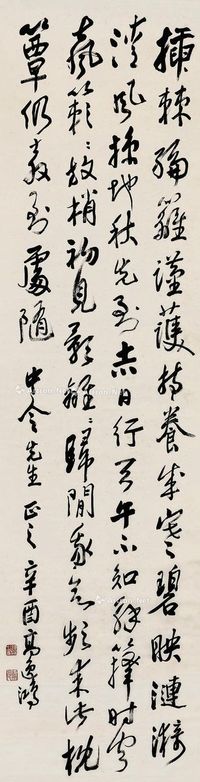 插棘編籬謹護持養成寒碧映漣漪
清風掠地秋先到赤日行天午不知解籜時聞
聲簌々放梢初見影離々歸閒我欲頻來此枕
簟仍教到處隨 中令先生正之 辛酉高逸鴻